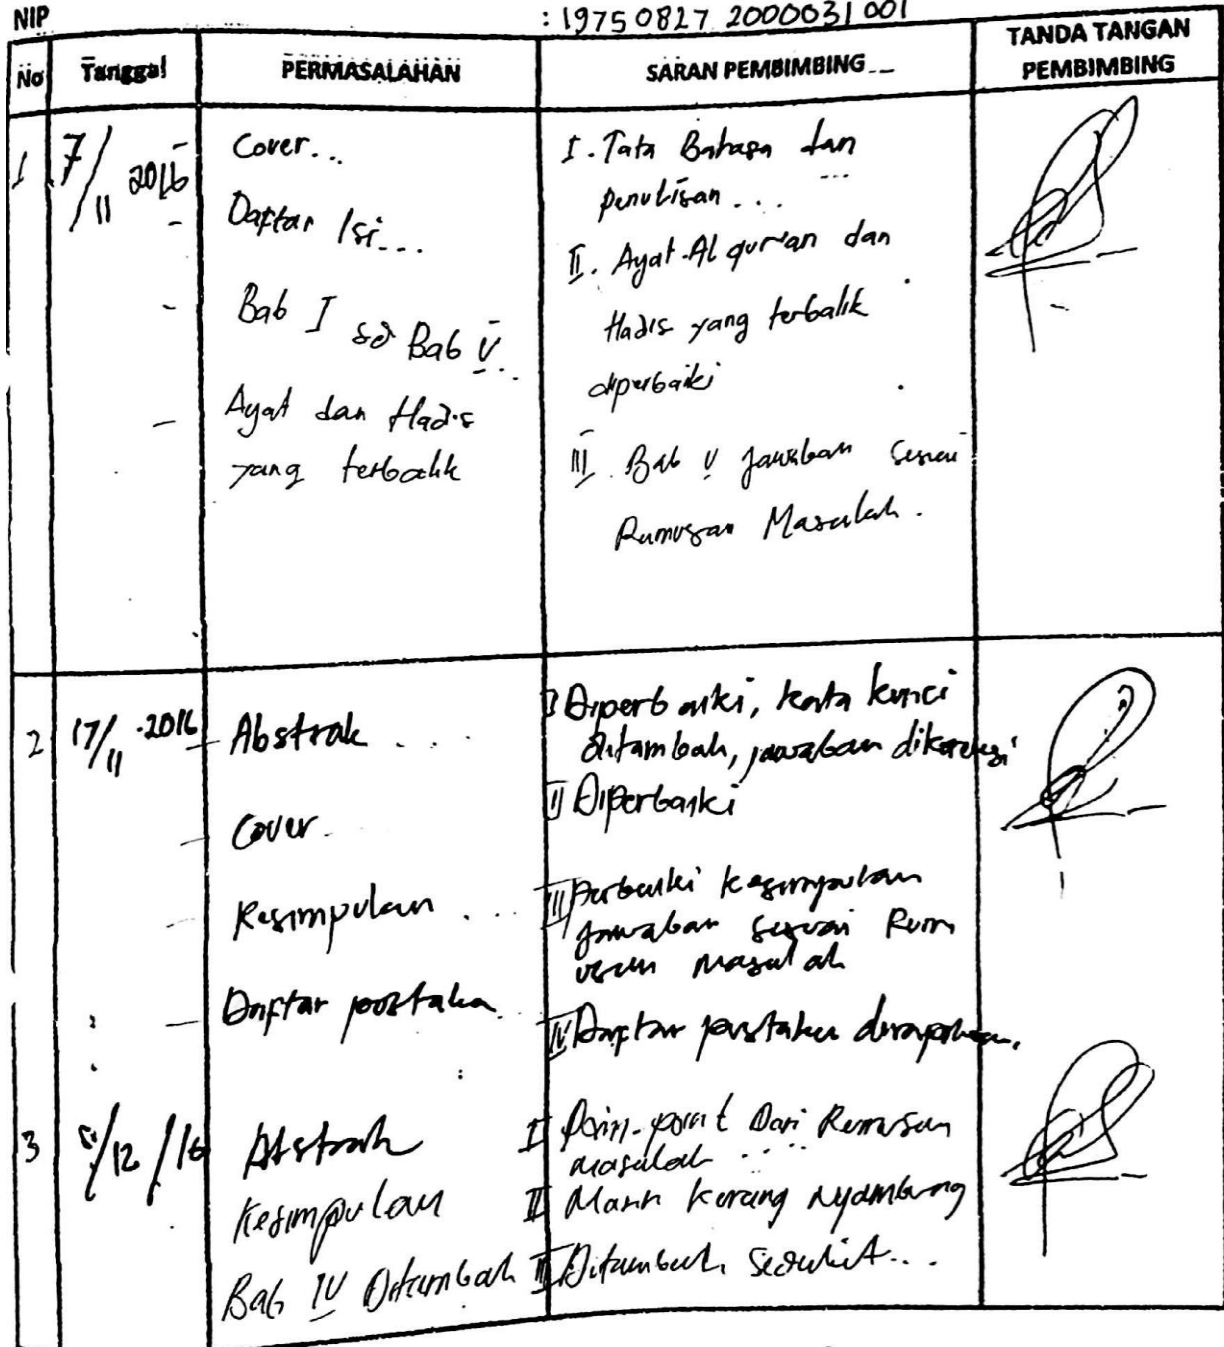 NIP : 19750827 2000031 001
No Tanggal PERMASALAHAN SARAN PEMBIMBING TANDA TANGAN PEMBIMBING
1 7/11 2016
- Cover...
- Daftar Isi...
- Bab I sd Bab V...
- Ayat dan Hadis
yang terbalik
I. Tata Bahasa dan
penulisan...
II. Ayat-Al qur'an dan
Hadis yang terbalik
diperbaiki
III. Bab V jawaban sesuai
Rumusan Masalah.
2 17/11 - 2016
- Abstrak ....
- Cover..
- Kesimpulan ...
- Daftar pustaka..
I Diperbaiki, kata kunci
ditambah, jawaban dikurangi
II Diperbaiki
III Perbaiki kesimpulan
jawaban sesuai Rum
usan masalah
IV Daftar pustaka dirapikan.
3 /12/16
Abstrak
Kesimpulan
Bab IV Ditambah
I Poin-point Dari Rumusan
masalah ....
II Masih kurang nyambung
III Ditambah sedikit...